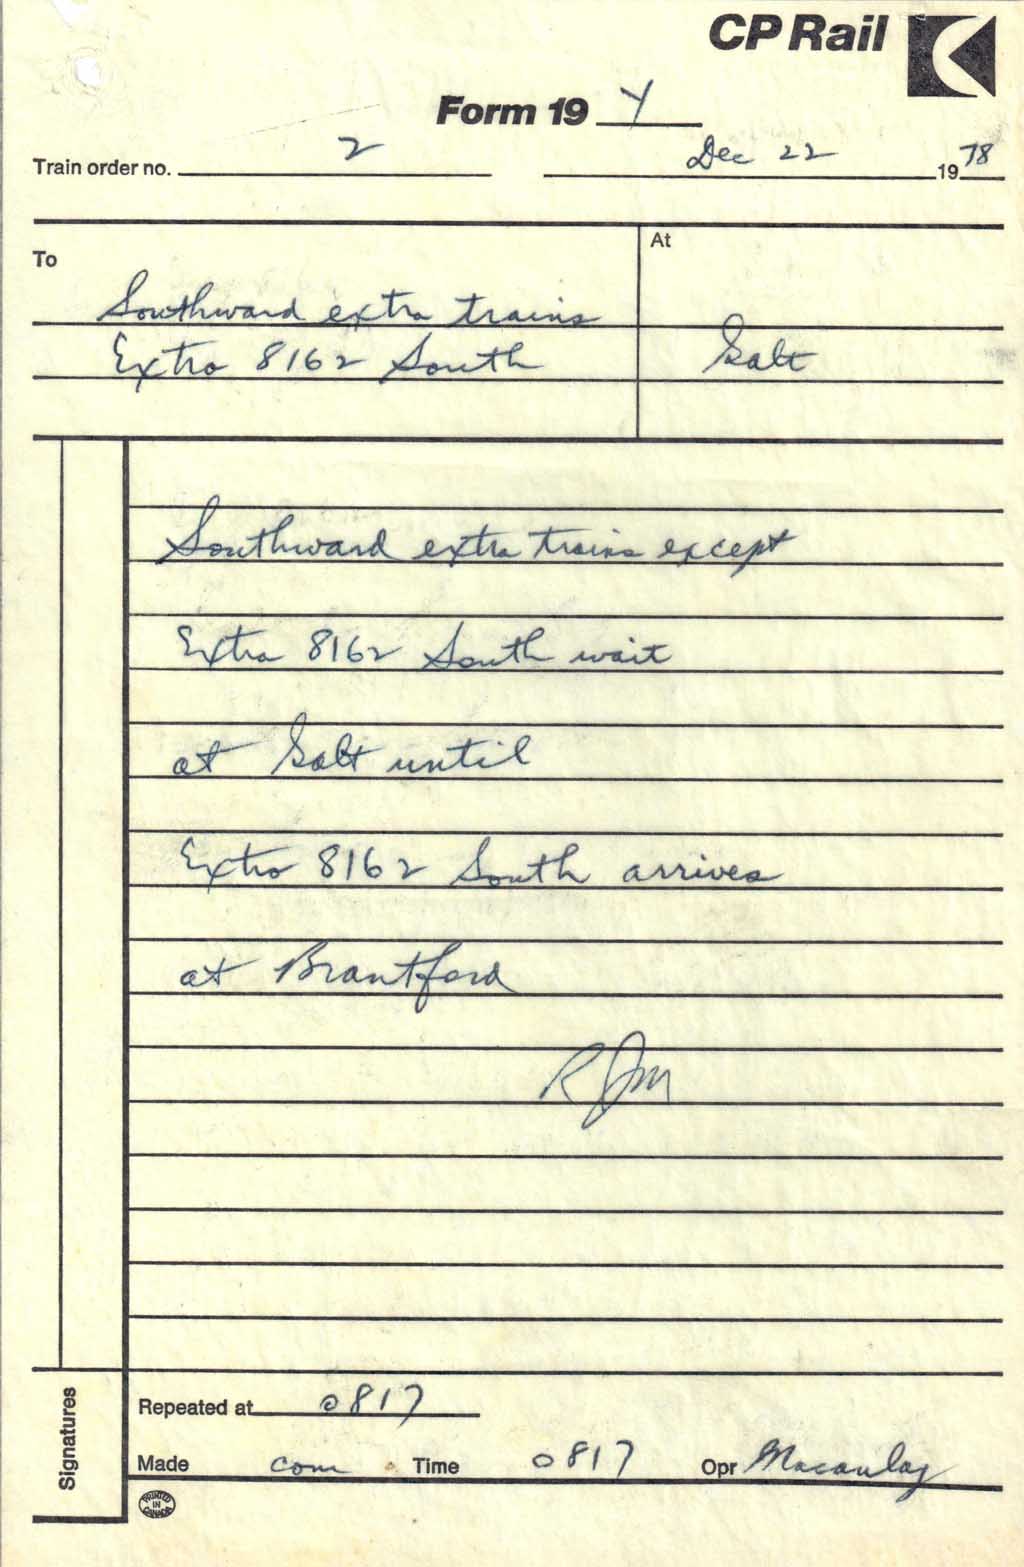 CP Rail
Form 19 Y
Train order no. 2 Dec 22 1978
To
At
Southward extra trains
Extra 8162 South
Galt
Southward extra trains except
Extra 8162 South wait
at Galt until
Extra 8162 South arrives
at Brantford
RJM
Signatures
Repeated at 0817
Made com Time 0817 Opr Macaulay
PRINTED IN CANADA